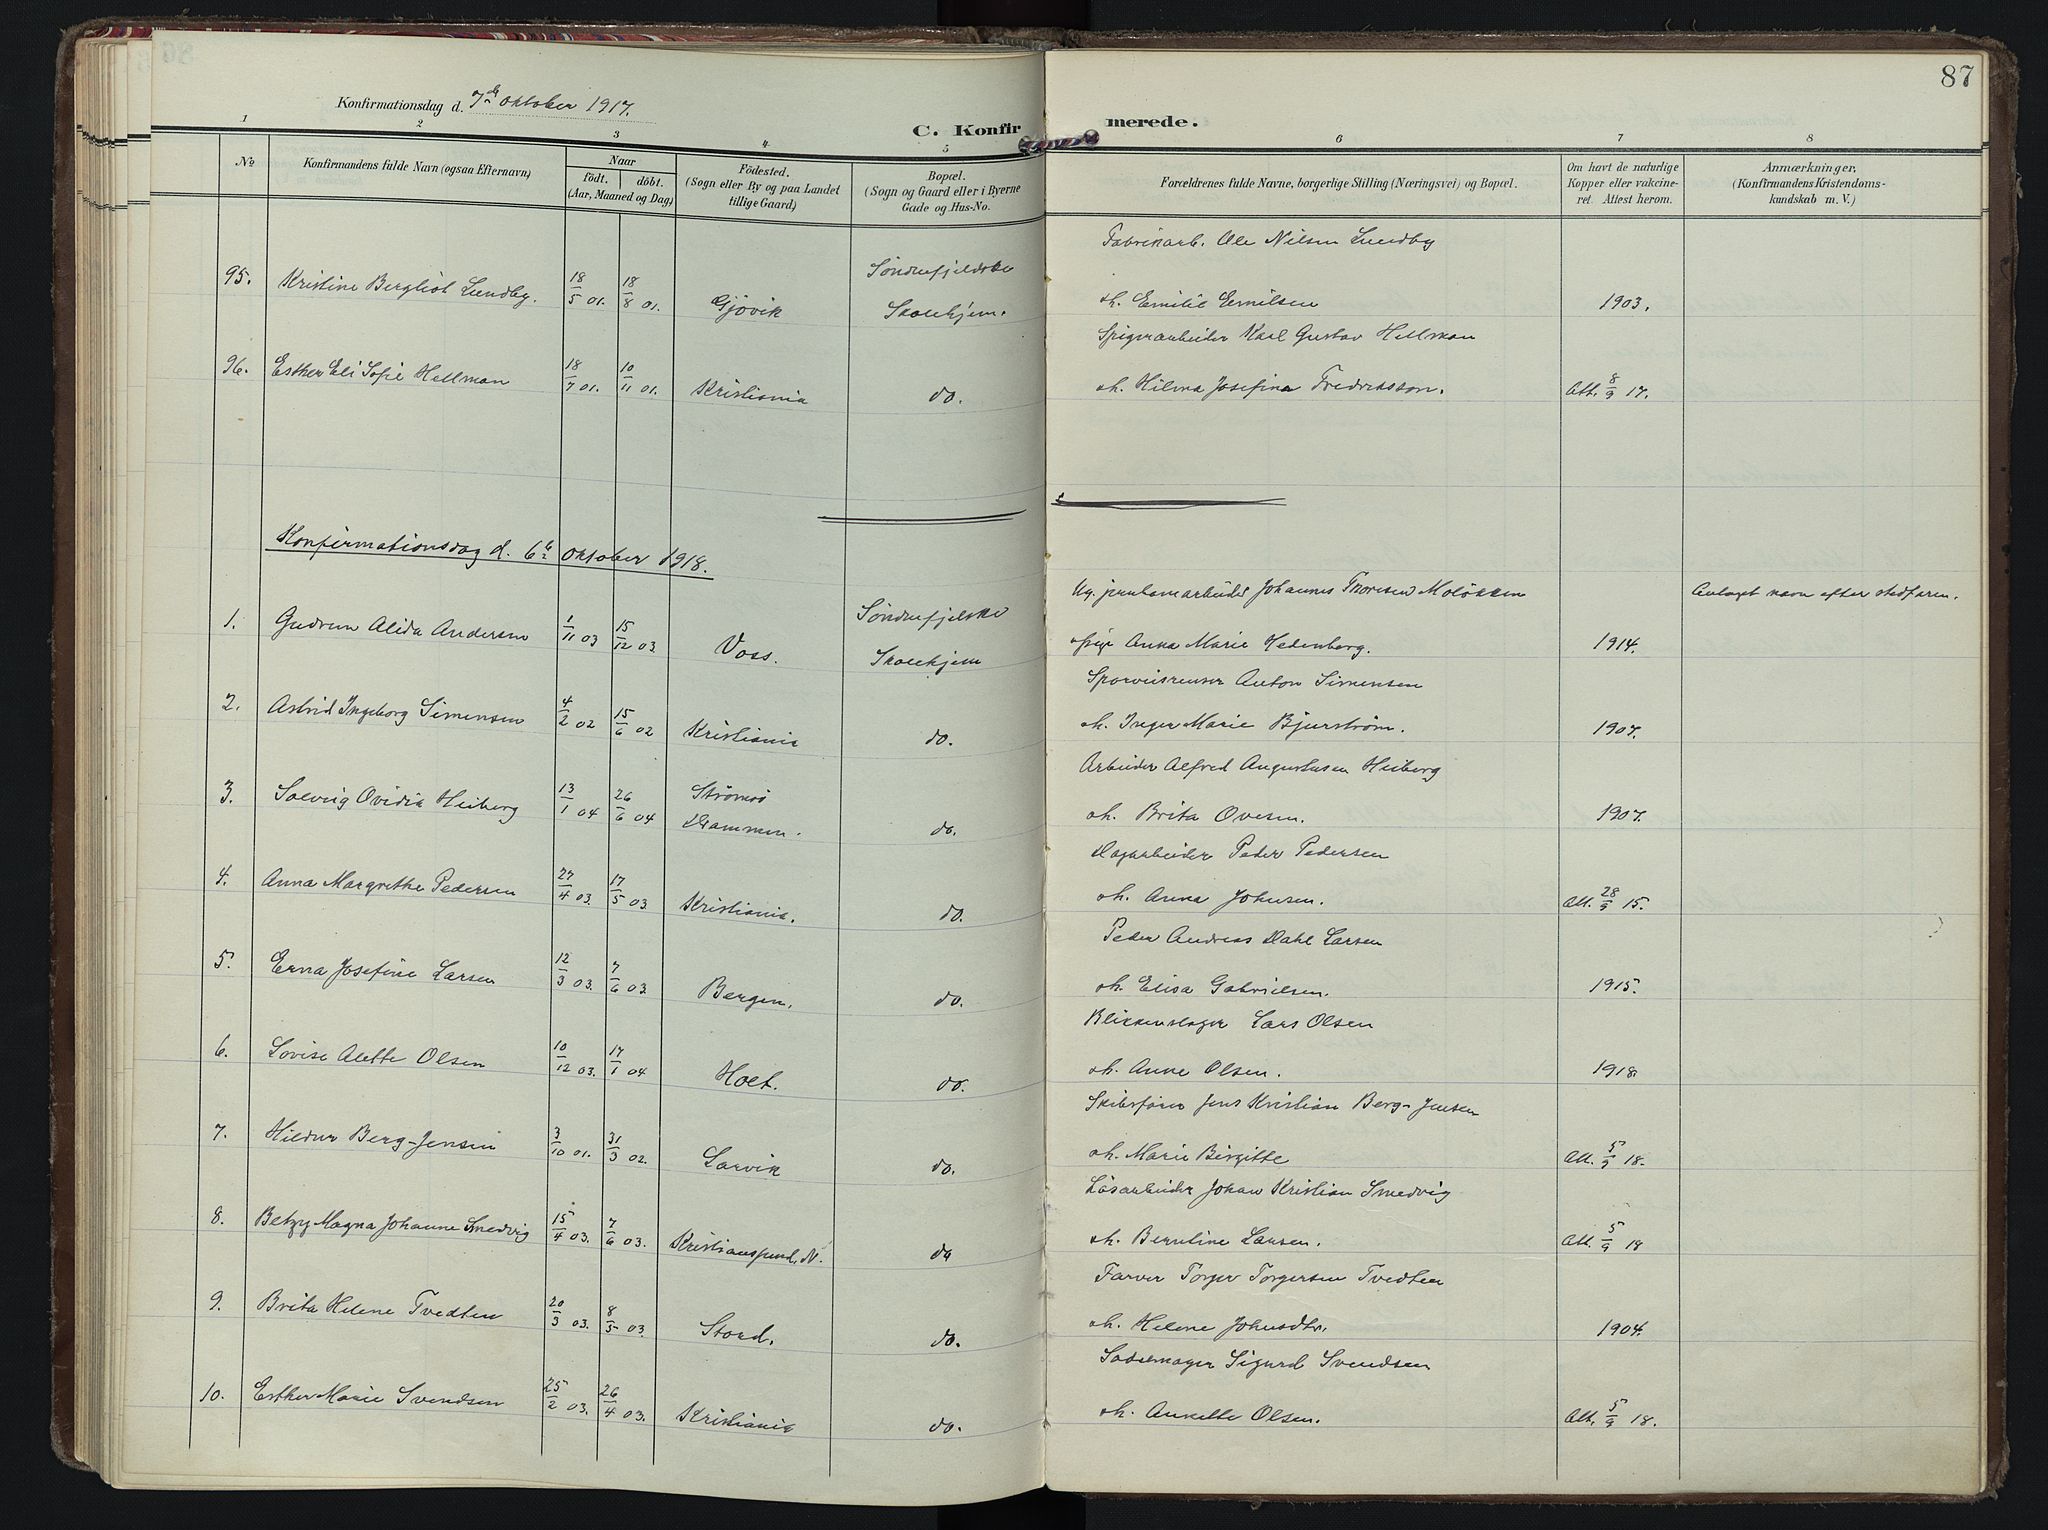 87
Konfirmationsdag d. 7de oktober 1917.
C. Konfirmerede.
1 2 3 4 5 6 7 8
No
Konfirmandens fulde Navn (ogsaa Efternavn)
Naar
födt. döbt.
(Aar, Maaned og Dag)
Födested.
(Sogn eller By og paa Landet
tillige Gaard)
Bopæl.
(Sogn og Gaard eller i Byerne
Gade og Hus-No.
Forældrenes fulde Navne, borgerlige Stilling (Næringsvei) og Bopæl.
Om havt de naturlige
Kopper eller vakcine-
ret. Attest herom.
Anmærkninger.
(Konfirmandens Kristendoms-
kundskab m. V.)
95. Kristine Bergliot Lundby. 18/5 01. 18/8 01. Gjövik Söndenfjeldske Skolehjem. Fabrikarb. Ole Nilsen Lundby
oh. Emilie Emilsen 1903.
96. Esther Eli Sofie Hellman 18/7 01. 10/11 01. Kristiania do. Spigerarbeider Karl Gustav Hellman
oh. Hilma Josefina Fredriksson. Att. 8/9 17.
Konfirmationsdag d. 6te oktober 1918.
1. Gudrun Alida Andersen 1/11 03 15/12 03. Voss. Söndenfjelske Skolehjem Ug. jernbanearbeider Johannes Thoresen Molökken
pige Anna Marie Hedenberg. 1914. Antaget navn efter stedfaren.
2. Astrid Ingeborg Simensen 4/2 02 15/6 02 Kristiania do. Sporveisrenser Anton Simensen
oh. Inger Marie Bjurström. 1907.
3. Solveig Ovidia Heiberg 13/1 04 26/6 04 Strömsö Drammen. do. Arbeider Alfred Augustusen Heiberg
oh. Brita Ovesen. 1907.
4. Anna Margrethe Pedersen 27/4 03. 17/5 03. Kristiania. do. Dagarbeider Peder Pedersen
oh. Anna Johnsen. Att. 28/9 15.
5. Erna Josefine Larsen 12/3 03. 7/6 03. Bergen. do. Peder Andreas Dahl Larsen
oh. Elisa Gabrielsen. 1915.
6. Lovise Alette Olsen 10/12 03. 17/1 04 Holt. do. Blikkenslager Lars Olsen
oh. Anne Olsen. 1918.
7. Hildur Berg-Jensen 3/10 01. 31/3 02. Larvik do. Skibsförer Jens Kristian Berg-Jensen
oh. Marie Birgitte Att. 5/9 18.
8. Betzy Magna Johanne Smedvig 15/4 03. 7/6 03. Kristianssund. N. do Lösarbeider Johan Kristian Smedvig
oh. Berntine Larsen. Att. 5/9 18
9. Brita Helene Tvedten 20/3 03. 8/5 03. Stord. do. Farver Torger Torgersen Tvedten
oh. Helene Johnsdtr. 1904.
10. Esther Marie Svendsen 25/2 03. 26/4 03. Kristiania do. Sadelmager Sigurd Svendsen
oh. Ankette Olsen. Att. 5/9 18.